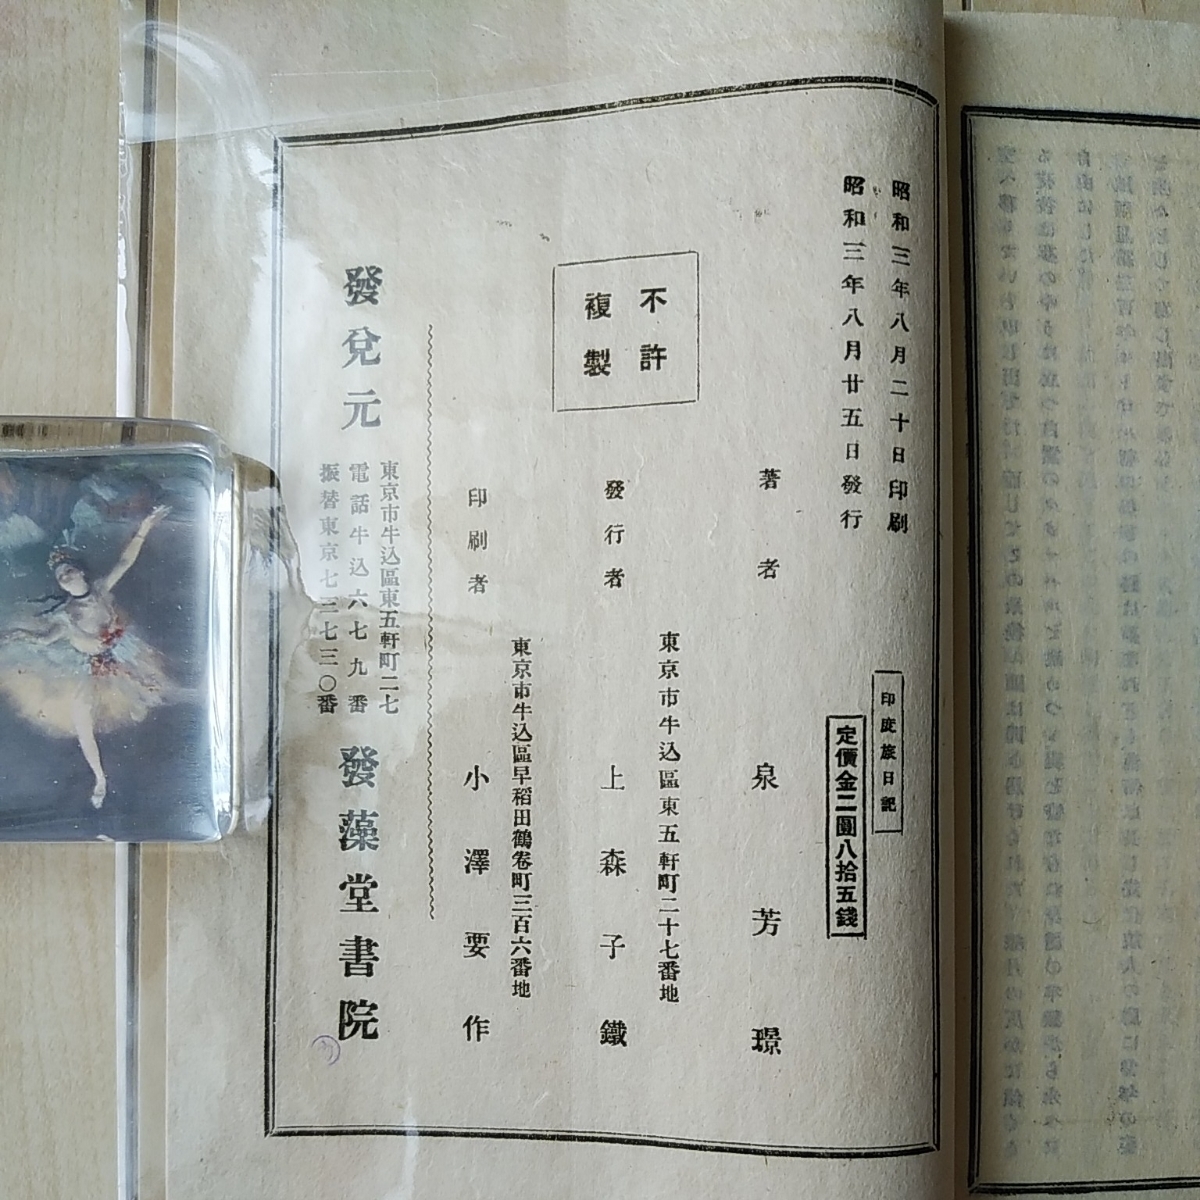 昭和三年八月二十日印刷
昭和三年八月廿五日發行
印度旅日記
定價金二圓八拾五錢
不許
複製
著者 泉芳璟
東京市牛込區東五軒町二十七番地
發行者 上森子鐵
東京市牛込區早稻田鶴卷町三百六番地
印刷者 小澤要作
發兌元
東京市牛込區東五軒町二七
電話牛込六七九番
振替東京七三七三〇番
發藻堂書院